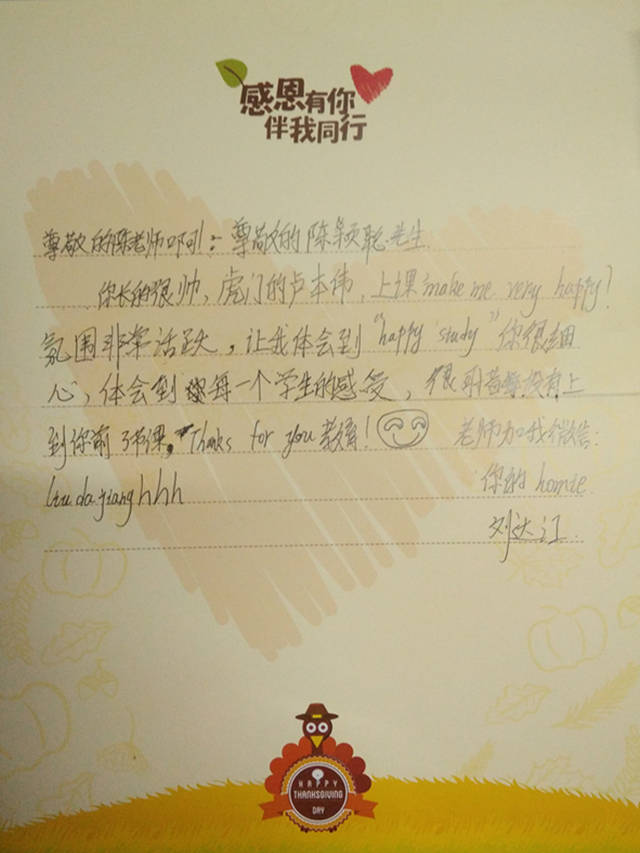 感恩有你
伴我同行
尊敬的陈老师啊!:尊敬的陈颖聪先生
你长的很帅,虎门的卢本伟,上课make me very happy!
氛围非常活跃,让我体会到“happy study”你很细
心,体会到每一个学生的感受,很可惜没有上
到你前3节课,Thanks for you教育! 老师加我微信:
liudajianghhh 你的homie
刘达江
HAPPY
THANKSGIVING
DAY